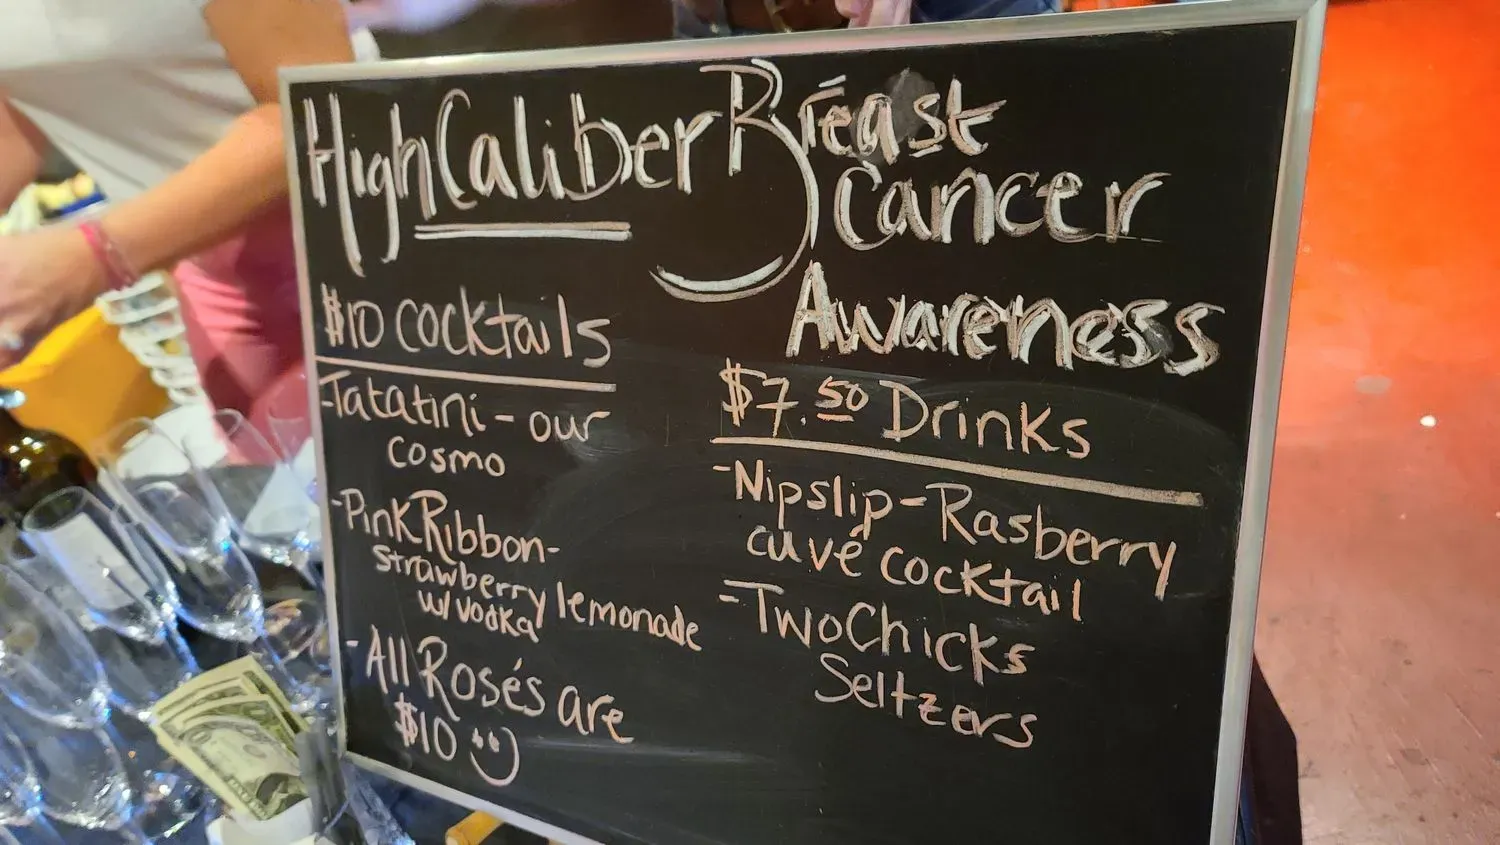 High Caliber Breast
Cancer
Awareness
$10 cocktails
-Tatatini - our
cosmo
-Pink Ribbon-
strawberry lemonade
w/vodka
-All Rosés are
$10
$7.50 Drinks
-Nipslip - Rasberry
cuvé cocktail
-Two Chicks
Seltzers